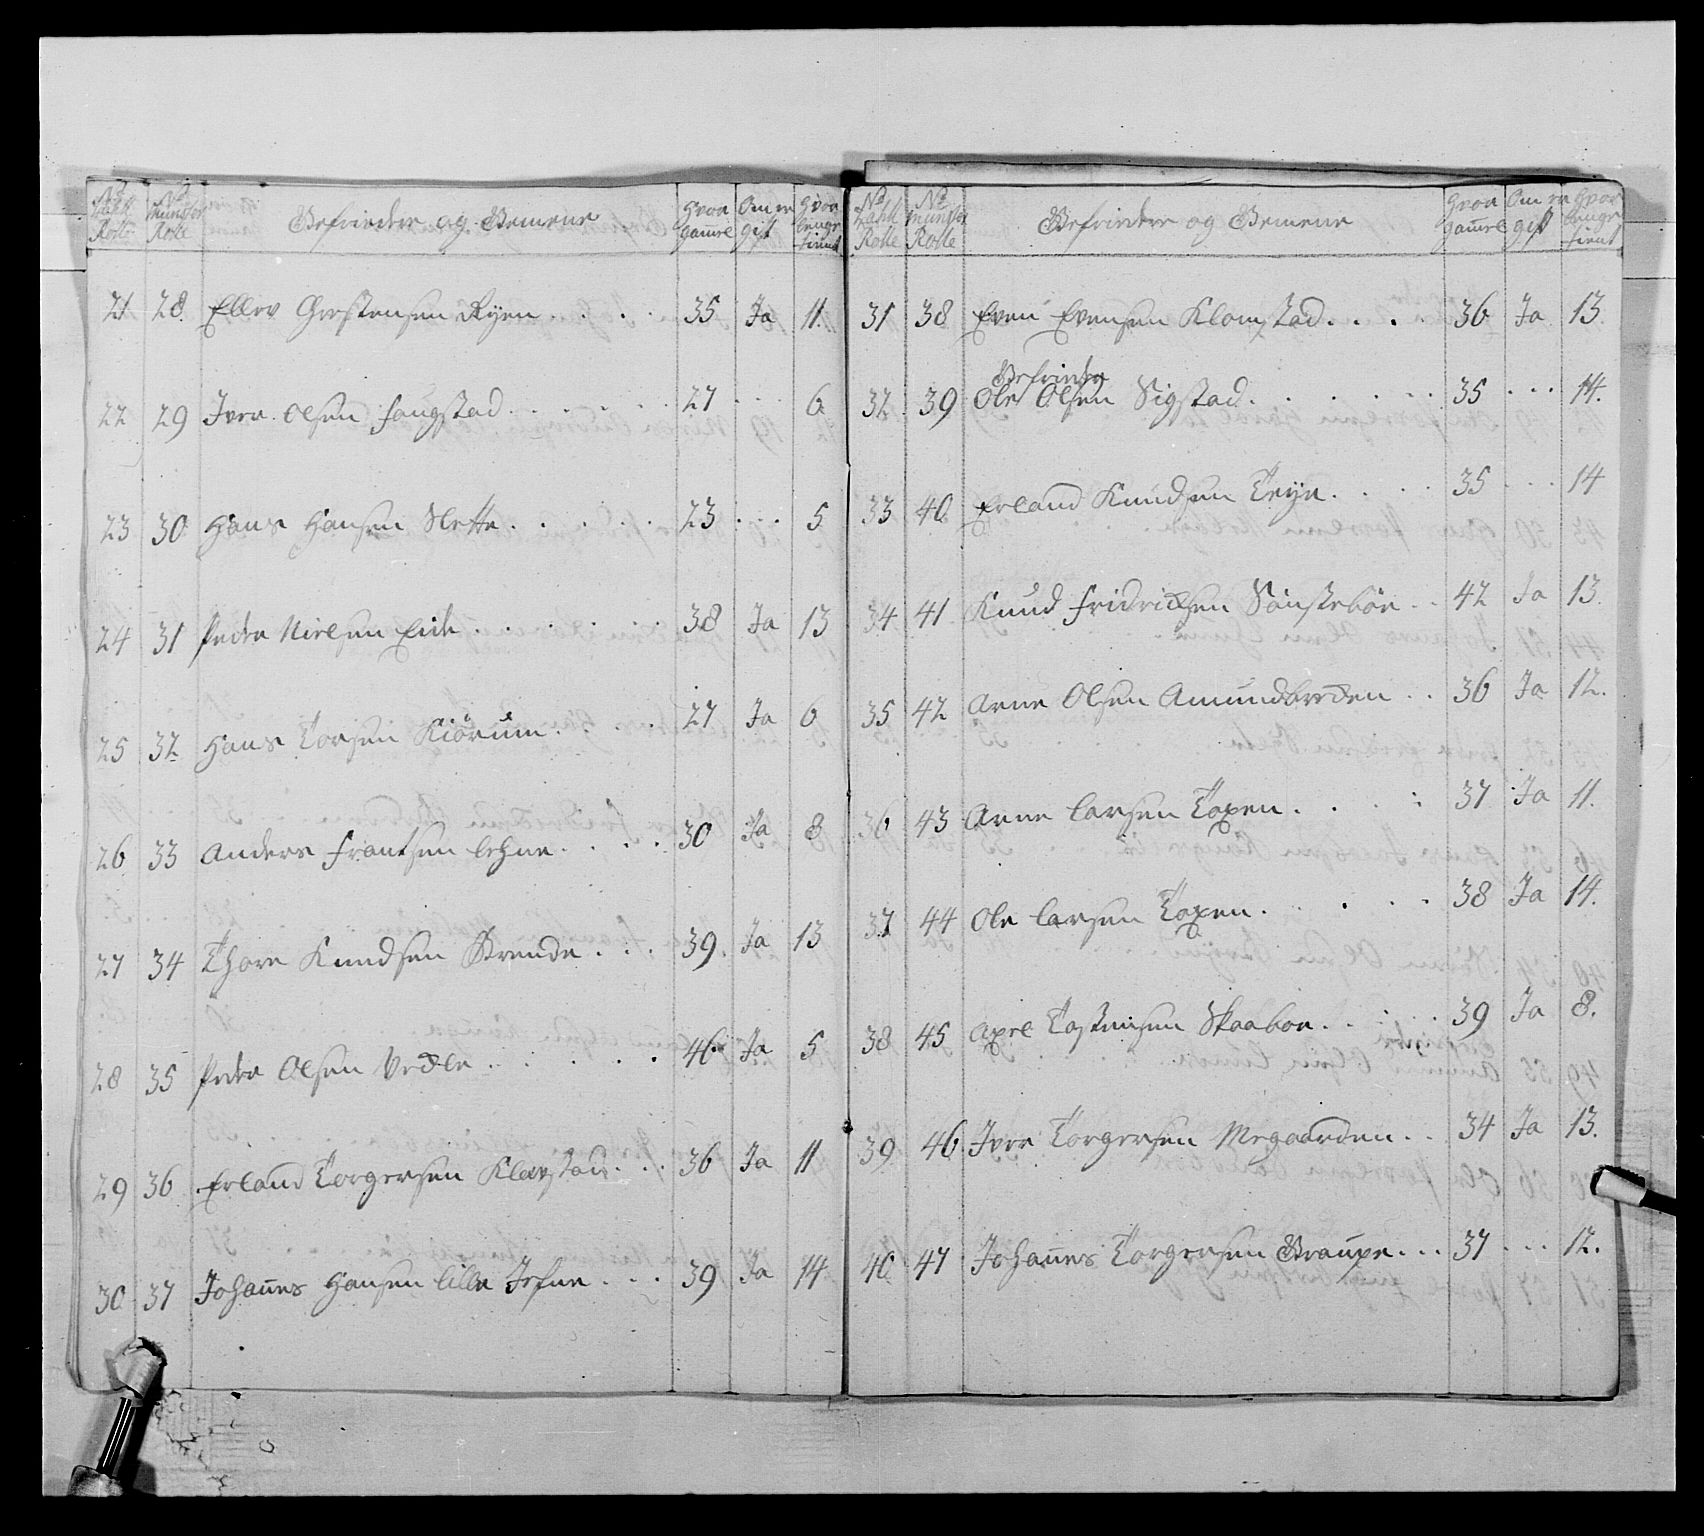 No Taxl Rolle | No Munster Rolle | Befriedere og Gemene | Hvor gamel | Om er gift | Hvor lenge tient
21 28 Ellev Grestensen Ryen . . . . 35 Ja 11.
22 29 Iver Olsen Haugstad . . . . . . 27 . . . 6
23 30 Hans Hansen Slette . . . . . . 23 . . . 5
24 31 Peder Nielsen Eide . . . . . . 38 Ja 13
25 32 Hans Torsen Kiörum . . . . 27 Ja 6
26 33 Anders Frantsen Lehne . . . . 30 Ja 8
27 34 Thore Knudsen Brende . . . 39 Ja 13
28 35 Peder Olsen . . . . . . 46 Ja 5
29 36 Erland Torgersen Klevstad . . . 36 Ja 11
30 37 Johannes Hansen Lille Jefne . . . 39 Ja 14
No Taxl Rolle | No Munster Rolle | Befriedere og Gemene | Hvor gamel | Om er gift | Hvor lenge tient
31 38 Even Evensen Klomstad . . . . 36 Ja 13.
Befrieder
32 39 Ole Olsen Sigstad . . . . . . 35 . . . 14.
33 40 Erland Knudsen . . . . 35 . . . 14
34 41 Knud Fridricksen Sönsteböe . . 42 Ja 13.
35 42 Arne Olsen Amundbrecken . . 36 Ja 12.
36 43 Arne Larsen Toxen . . . . 37 Ja 11.
37 44 Ole Larsen Toxen . . . . . . 38 Ja 14.
38 45 Axel Tostensen Skaaboe . . . . . 39 Ja 8.
39 46 Iver Torgersen Megaarden . . 34 Ja 13.
40 47 Johannes Torgersen Graupe . . . 37 . . . 12.